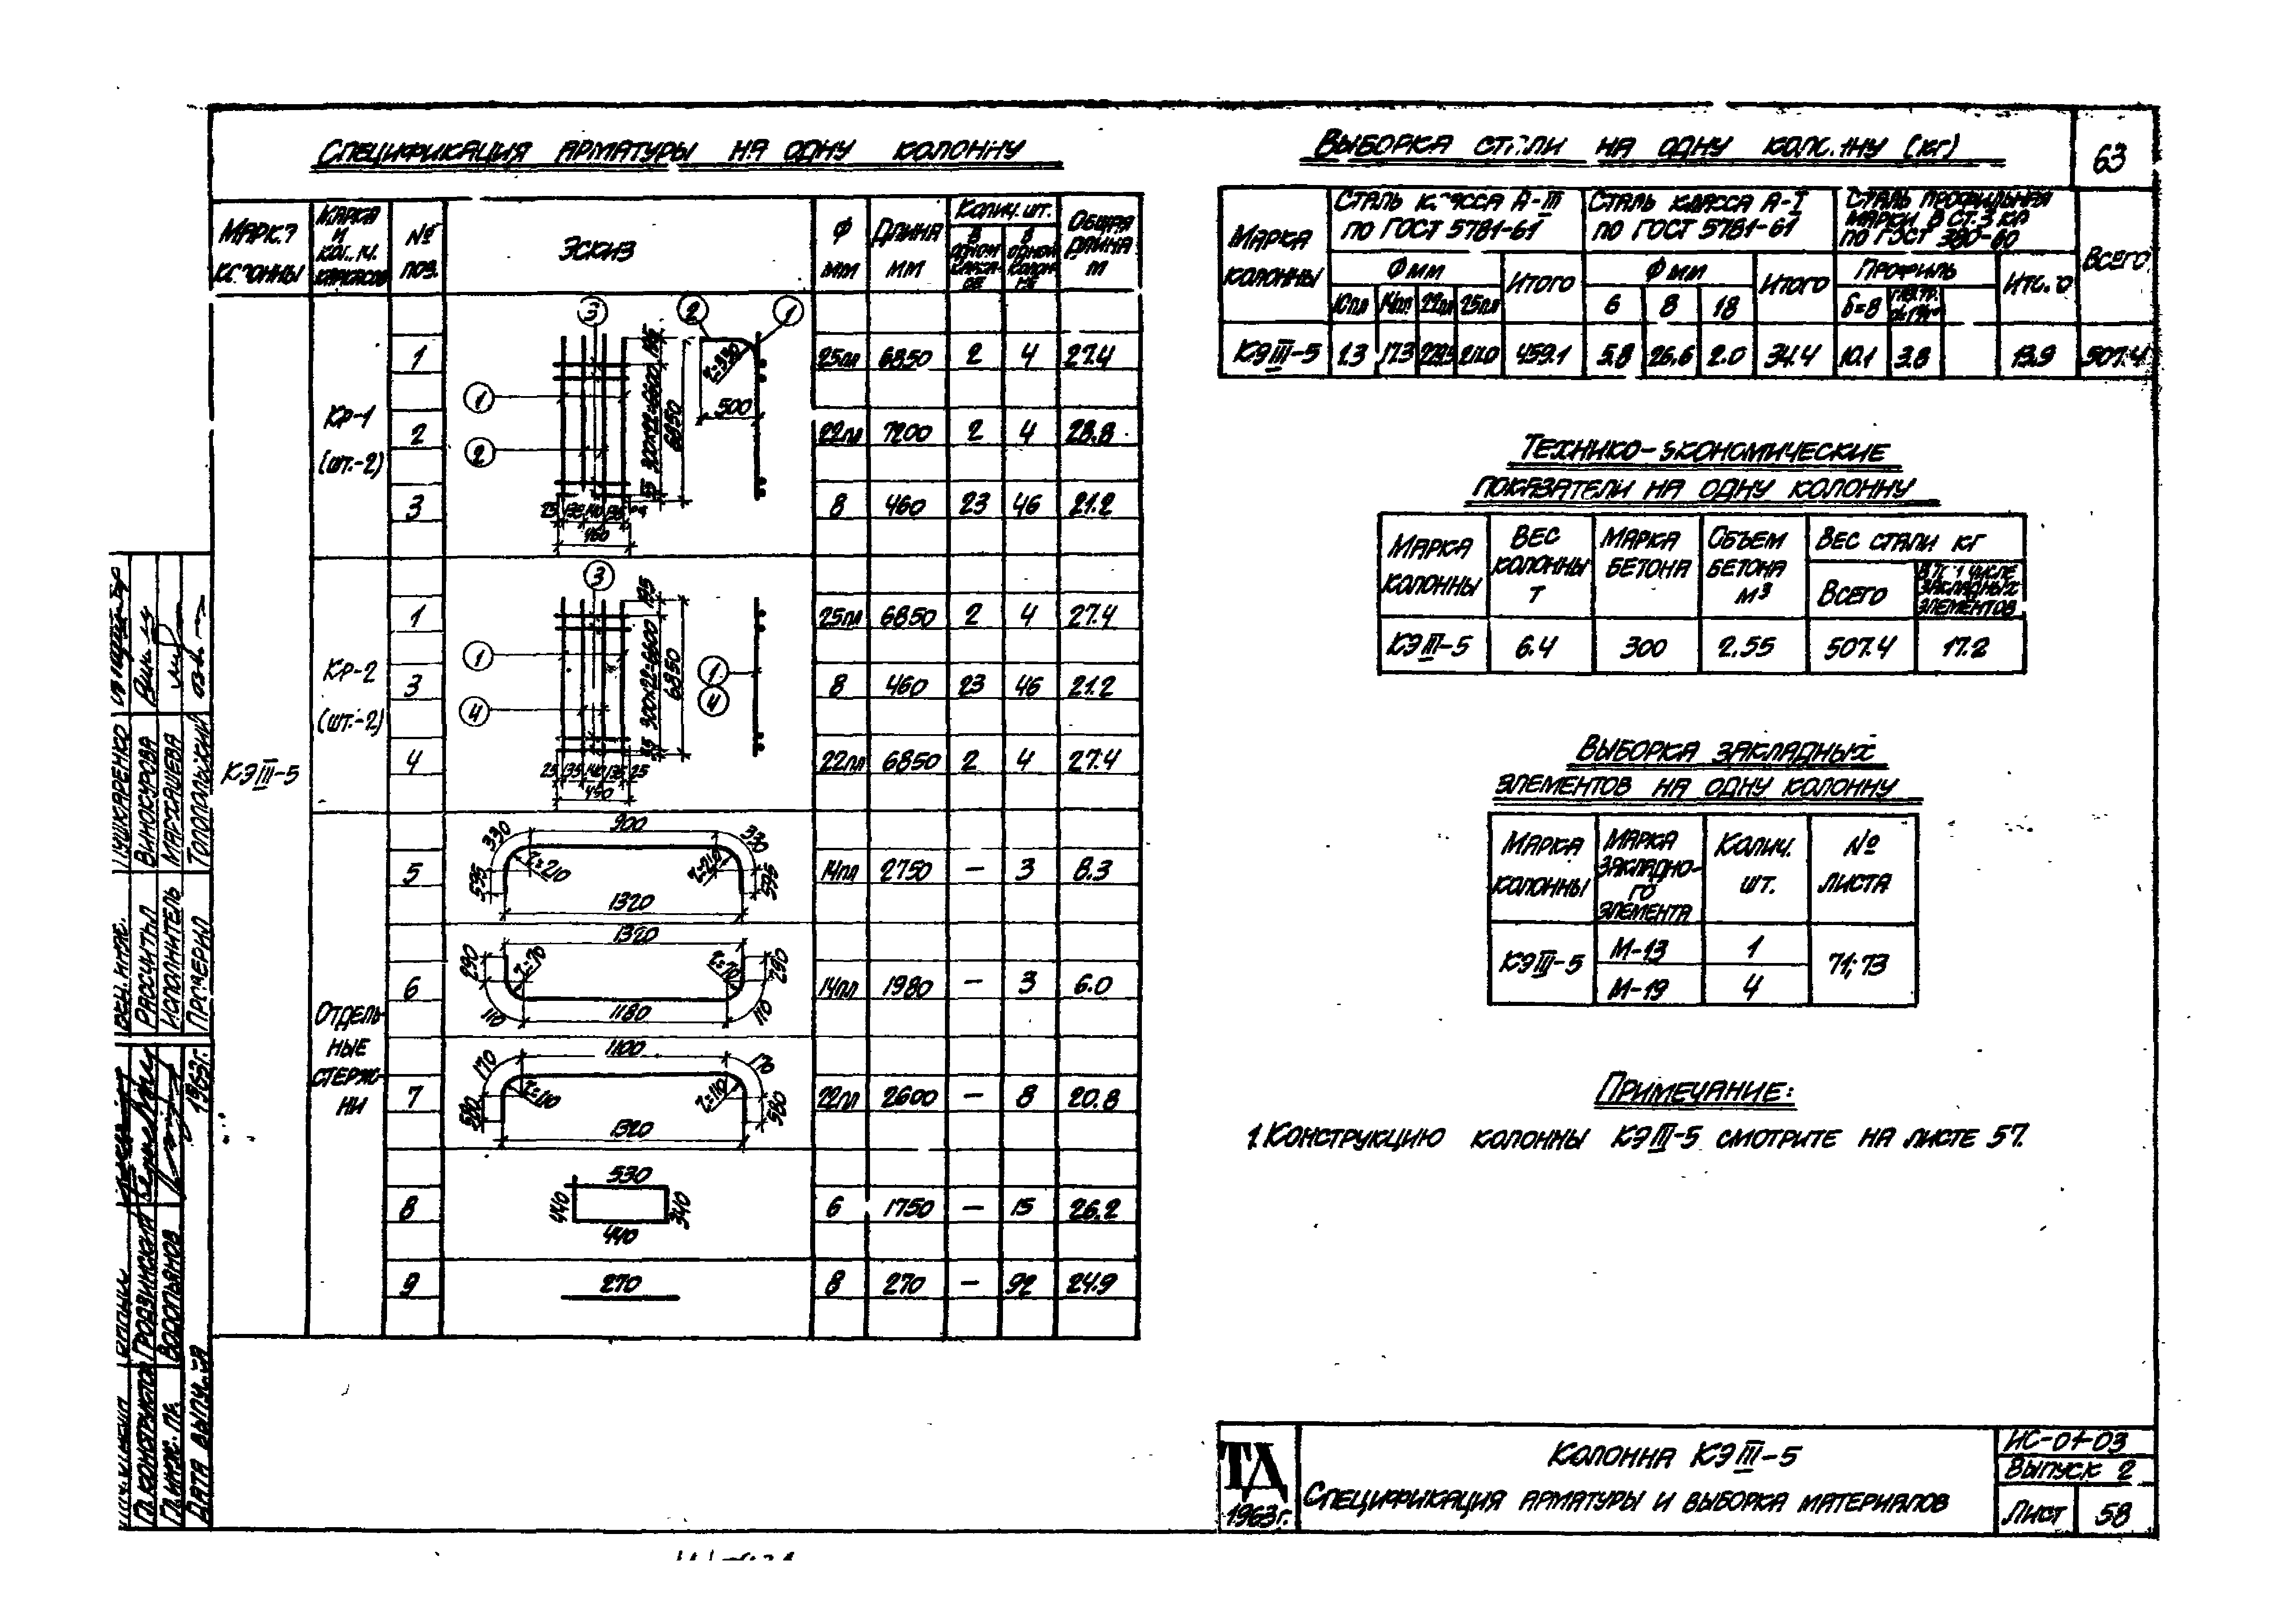 63
Спецификация арматуры на одну колонну
Колич. шт.
Эскиз
Ф мм
Длина мм
Общая длина м
№ поз.
Кр-1 (шт.-2)
1 25пл 6850 2 4 27.4
2 22пл 7200 2 4 28.8
3 8 460 23 46 21.2
300×22=6600
6850
500
460
Кр-2 (шт.-2)
1 25пл 6850 2 4 27.4
3 8 460 23 46 21.2
4 22пл 6850 2 4 27.4
195
300×22=6600
6850
25 135 140 135 25
КЭIII-5
Отдель-
ные
стерж-
ни
5 14пл 2750 — 3 8.3
330 900 330
595 r=210 r=210 595
1320
6 14пл 1980 — 3 6.0
1320
290 r=70 r=70 290
110 1180 110
7 22пл 2600 — 8 20.8
170 1100
580 r=110 580
1320
8 6 1750 — 15 26.2
530
440 340
440
9 8 270 — 92 24.9
270
Выборка стали на одну колонну (кг)
Марка колонны
Сталь класса А-III по ГОСТ 5781-61
Сталь класса А-I по ГОСТ 5781-61
Сталь профильная марки В Ст.3 кп по ГОСТ 380-60
Всего
Ф мм Итого Ф мм Итого Профиль Итого
10пл 14пл 22пл 25пл 6 8 18 δ=8
КЭIII-5 1.3 17.3 211.0 459.1 5.8 26.6 2.0 34.4 10.1 3.8 13.9 507.4
Технико-экономические
показатели на одну колонну
Марка колонны
Вес колонны т
Марка бетона
Объем бетона м³
Вес стали кг
Всего
В т.ч. числе закладных элементов
КЭIII-5 6.4 300 2.55 507.4 17.2
Выборка закладных
элементов на одну колонну
Марка колонны
Марка закладно-го элемента
Колич. шт.
№ листа
КЭIII-5 М-13 1 71; 73
М-19 4
Примечание:
1. Конструкцию колонны КЭIII-5 смотрите на листе 57.
ТД
1963г.
Колонна КЭIII-5
Спецификация арматуры и выборка материалов
ИС-01-03
Выпуск 2
Лист 58
Рассчитал Винокурова
Исполнитель
Проверил
Гл. конструктор
Гл. инж. пр. Водопьянов
Дата выпуска 1963г.